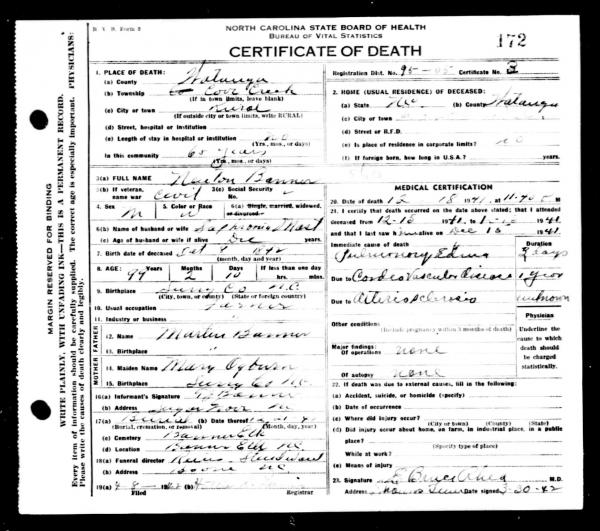 N. C. B. Form 8
NORTH CAROLINA STATE BOARD OF HEALTH
BUREAU OF VITAL STATISTICS
CERTIFICATE OF DEATH
172
MARGIN RESERVED FOR BINDING
WRITE PLAINLY, WITH UNFADING INK—THIS IS A PERMANENT RECORD.
Every item of information should be carefully supplied. The correct age is especially important. PHYSICIANS:
Please write the causes of death clearly and legibly.
1. PLACE OF DEATH:
(a) County Watauga
(b) Township Cove Creek
(If in town limits, leave blank)
(c) City or town Rural
(If outside city or town limits, write RURAL)
(d) Street, hospital or institution
(e) Length of stay in hospital or institution no
(Yrs., mos., or days)
In this community 65 years
(Yrs., mos., or days)
Registration Dist. No. 95-05 Certificate No. 3
2. HOME (USUAL RESIDENCE) OF DECEASED:
(a) State NC (b) County Watauga
(c) City or town
(d) Street or R.F.D.
(e) Is place of residence in corporate limits? no
(f) If foreign born, how long in U.S.A.? yrs.
3(a) FULL NAME Newton Banner
3(b) If veteran, name war Civil
3(c) Social Security No.
4. Sex M
5. Color or Race W
6(a) Single, married, widowed, or divorced
6(b) Name of husband or wife
6(c) Age of husband or wife if alive
7. Birth date of deceased
(month, day and year)
8. AGE: 99 Years 2 Months 10 Days If less than one day hrs. mins.
9. Birthplace Surry Co N.C.
(City, town, or county) (State or foreign country)
10. Usual occupation Farmer
11. Industry or business
MOTHER FATHER
12. Name Martin Banner
13. Birthplace "
14. Maiden Name Mary Ogburn
15. Birthplace Surry Co NC.
16(a) Informant's Signature Banner
(b) Address Sugar Grove NC
17(a) Burial (b) Date thereof
(Burial, cremation, or removal) (Month, day, year)
(c) Cemetery Banner Elk
(d) Location Banner Elk NC
18(a) Funeral director
(b) Address Boone NC
19(a) 4-8-1942
Filed Registrar
MEDICAL CERTIFICATION
20. Date of death 12 18 1941 at 11:40
21. I certify that death occurred on the date above stated; that I attended
deceased from 12-15 1941, to 1941
and that I last saw him alive on Dec 15 1941
Immediate cause of death Duration
Pulmonary Edema 3 days
Due to Cardio Vascular disease 1 year
Due to Arteriosclerosis unknown
Other conditions:
(Include pregnancy within 3 months of death)
Physician
Underline the cause to which death should be charged statistically.
Major findings:
Of operations none
Of autopsy none
22. If death was due to external causes, fill in the following:
(a) Accident, suicide, or homicide (specify)
(b) Date of occurrence
(c) Where did injury occur?
(City or town) (County) (State)
(d) Did injury occur about home, on farm, in industrial place, in a public place?
(Specify type of place)
While at work?
(e) Means of injury
23. Signature M.D.
Address Date signed 3-30-42